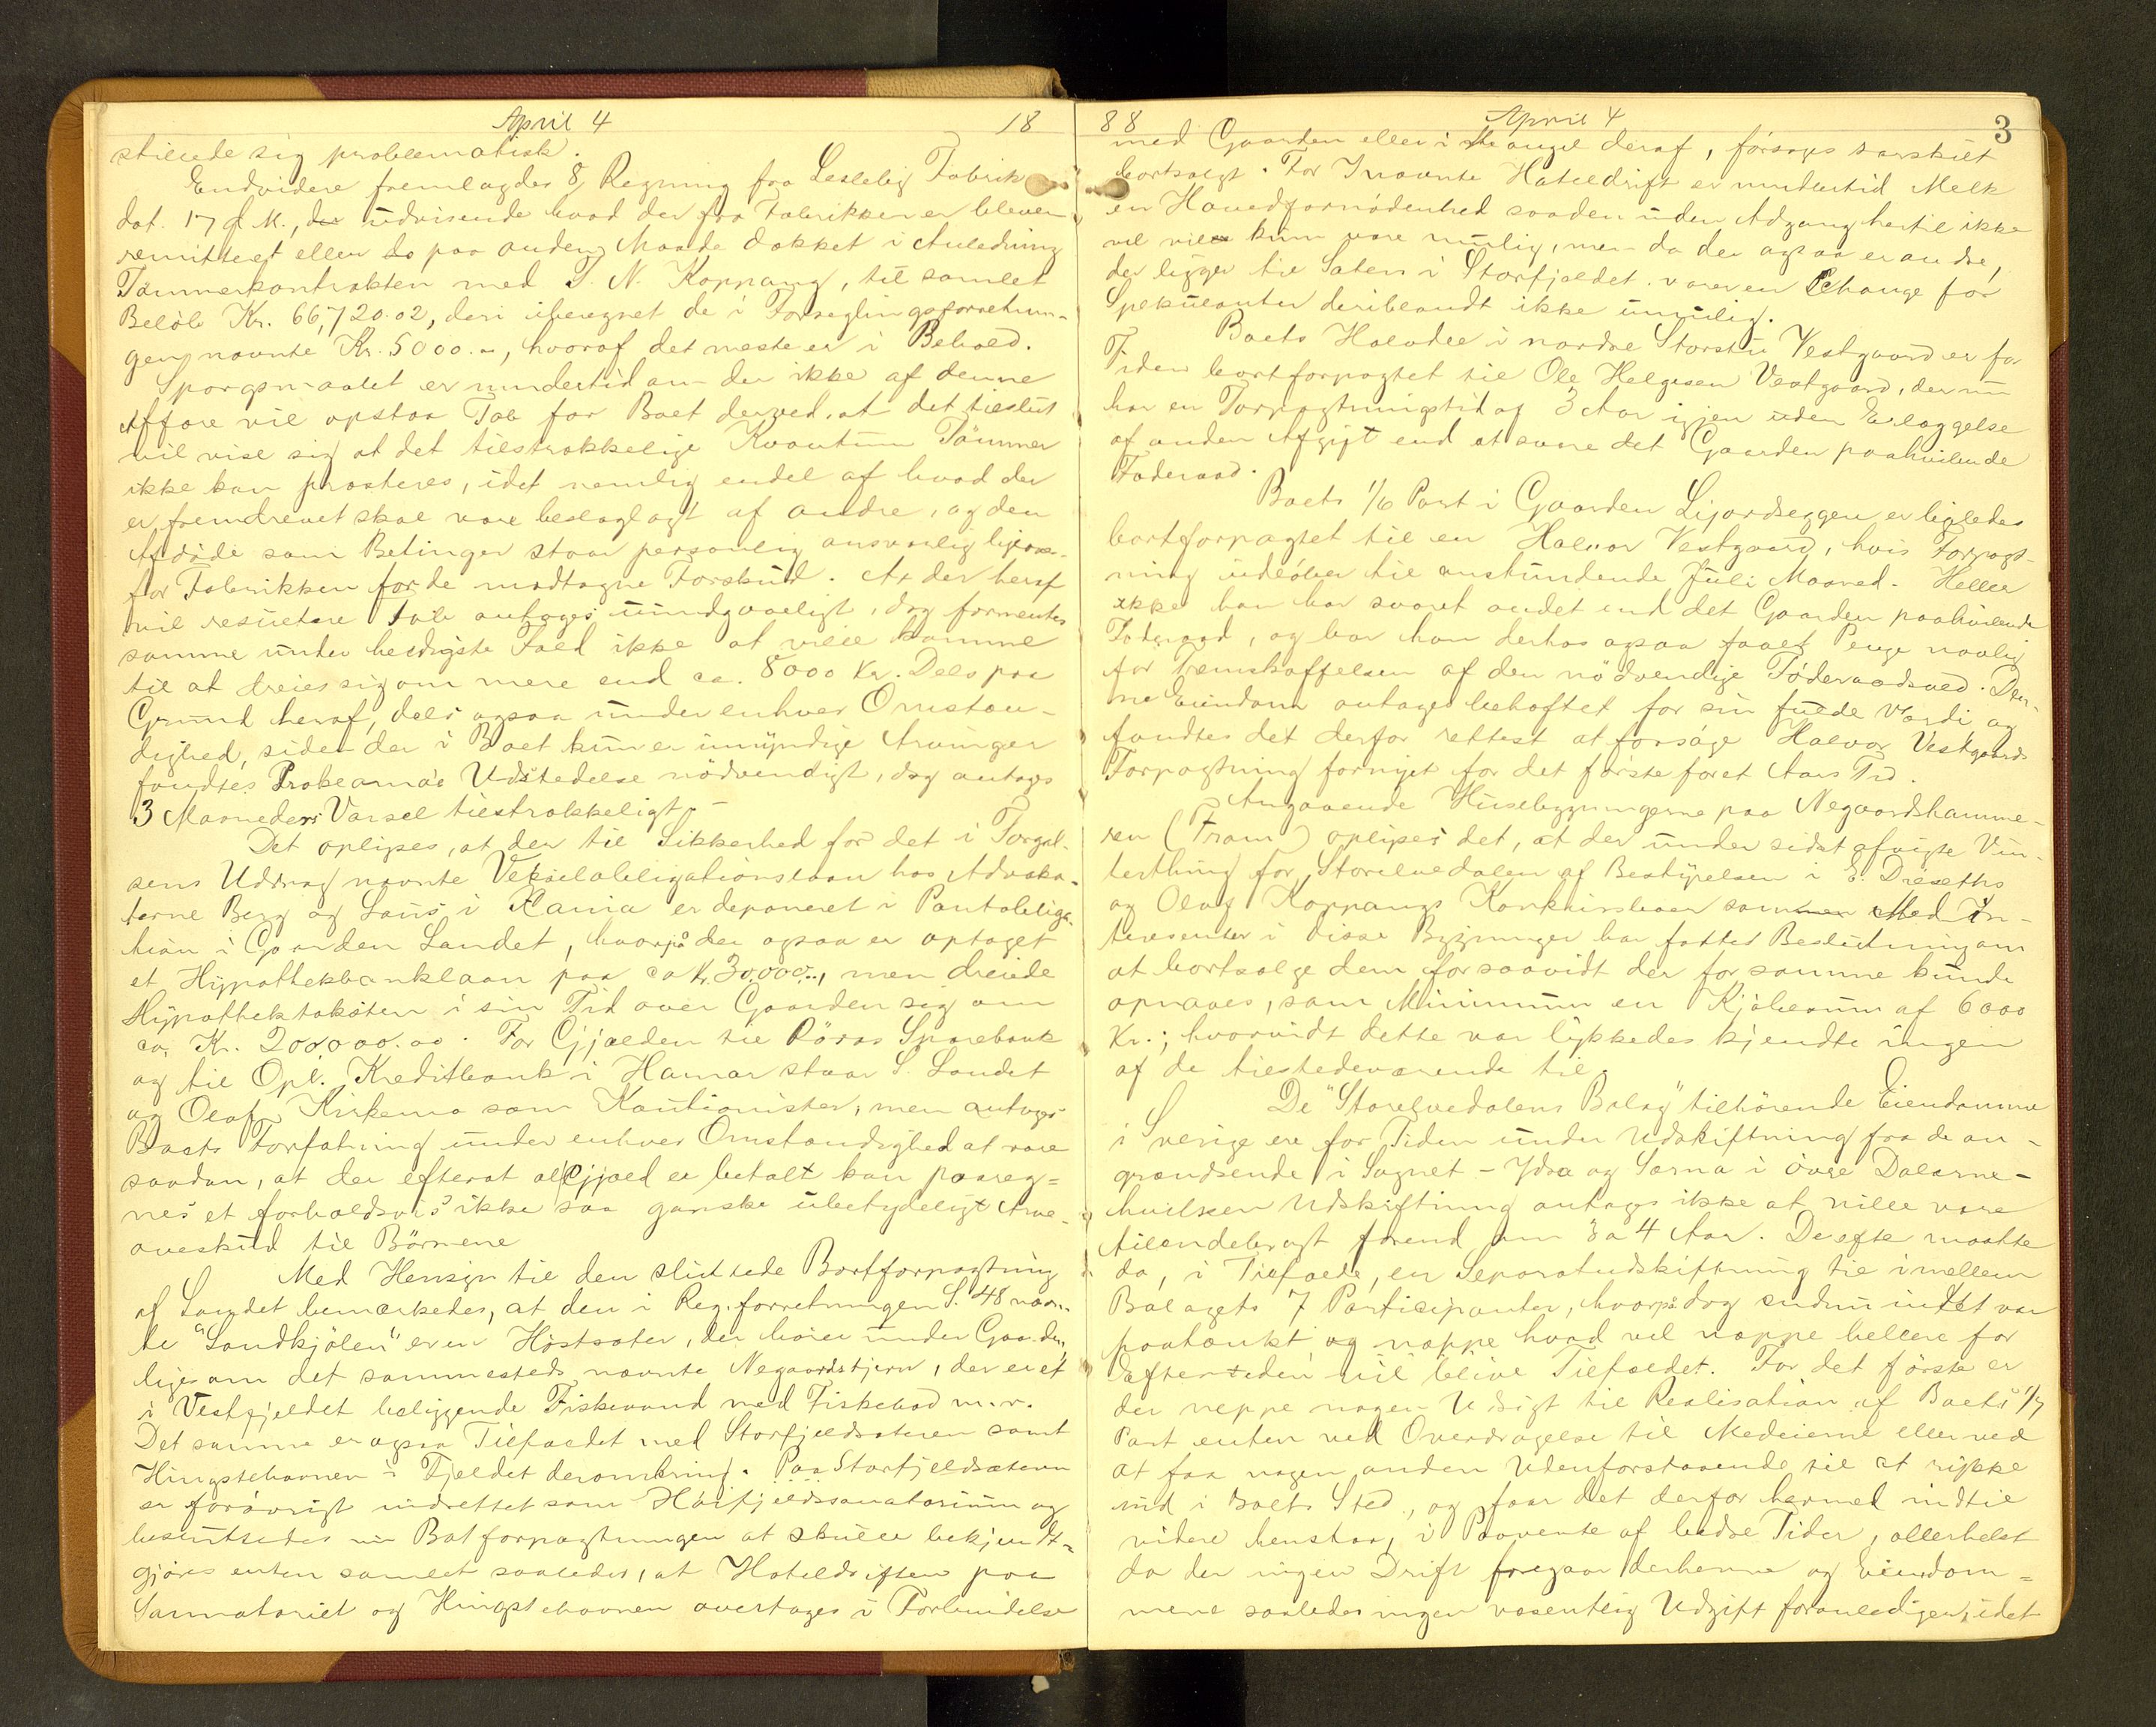 April 4 18
stillede sig problematisk.
Endvidere fremlagdes 8, Regning fra Lesleby Fabrik
dat. 17 d. M., der udvisende hvad der fra Fabrikken er bleven
remitteret eller do paa anden Maade dækket i Anledning
Tømmerkontrakten med T. N. Koppang, til samlet
Beløb Kr. 66,720.02, deri iberegnet de i Forseglingsforretnin-
gen nævnte Kr. 5000.-, hvoraf det meste er i Behold.
Spørgsmaalet er imidlertid om der ikke af denne
Affære vil opstaa Tab for Boet derved, at det tilslut
vil vise sig at det tilstrækkelige Kvantum Tømmer
ikke kan præsteres, idet nemlig endel af hvad der
er fremdrevet skal være beslaglagt af andre, og den
Afdøde som Betinger staar personlig ansvarlig ligeover-
for Fabrikken for de modtagne Forskud. At der heraf
vil resultere Tab antages uundgaaeligt, dog formentes
samme under heldigste Fald ikke at ville komme
til at dreie sig om mere end ca. 8000 Kr. Dels paa
Grund heraf, dels ogsaa under enhver Omstæn-
dighed, siden der i Boet kun er umyndige Arvinger
fandtes Proklama's Udstedelse nødvendigt, dog antages
3 Maaneders Varsel tilstrækkeligt.-
Det oplyses, at der til Sikkerhed for det i Torgal-
sens Uddrag nævnte Vekselobligationslaan hos Advoka-
terne Berg og Lous i Xania er deponeret i Pantobliga-
tion i Gaarden Landet, hvorpå der ogsaa er optaget
et Hypothekbanklaan paa ca Kr. 30,000.-, men dreiede
Hypothektaksten i sin Tid over Gaarden sig om
ca. Kr. 200000.00. For Gjælden til Röros Sparebank
og til Opl. Kreditbank i Hamar staar S. Landet
og Olaf Kirkemo som Kautionister, men antages
Boets Forfatning under enhver Omstændighed at være
saadan, at der efterat al Gjæld er betalt kan paareg-
nes et forholdsvis ikke saa ganske ubetydeligt Arve-
overskud til Börnene
Med Hensyn til den sluttede Bortforpagtning
af Landet bemærkedes, at den i Reg.forretningen S. 48 nævn-
te "Landkjölen" er en Høstsæter, der hører under Gaarden,
ligesom det sammesteds nævnte Negaardstjern, der er et
i Vestfjeldet beliggende Fiskevand med Fiskebod m.v.
Det samme er ogsaa Tilfældet med Storfjeldsæteren samt
Hingstehavnen i Fjeldet deromkring. Paa Storfjeldsæteren
er forøvrigt indrettet som Høifjeldssanatorium og
besluttedes nu Bortforpagtningen at skulle bekjendt-
gjøres enten samlet saaledes, at Hoteldriften paa
Sannatoriet og Hingstehavnen overtages i Forbindelse
88 April 4 3
med Gaarden eller i Mangel deraf, forsøges særskilt
bortsolgt. For Inævnte Hoteldrift er imidlertid Melk
en Hovedfornødenhed saaden uden Adgang hertil ikke
vel vil kun være mulig, men da der ogsaa er andre,
der ligger til Sæters i Storfjeldet. varer en Change for
Spekulanter deriblandt ikke umulig.
Boets Halvdel i nordre Storstu Vestgaard er for
Tiden bortforpagtet til Ole Helgesen Vestgaard, der nu
har en Forpagtningstid af 3 Aar igjen uden Erlæggelse
af anden Afgift end at svare det Gaarden paahvilende
Føderaad.
Boets 1/6 Part i Gaarden Lijordseggen er ligeledes
bortforpagtet til en Halvor Vestgaard, hvis Forpagt-
ning udløber til anstundende Juli Maaned. Heller
ikke han har svaret andet end det Gaarden paahvilende
Føderaad, og har han derhos ogsaa faaet Penge navnlig
for Fremskaffelsen af den nødvendige Føderaadsved. Den-
ne Eiendom antages behæftet for sin fulde Værdi og
fandtes det derfor rettest at forsøge Halvor Vestgaards
Forpagtning fornyet for det første foret Aars Tid.
Angaaende Husebygningerne paa Negaardshamme-
ren (Fram) oplyses det, at der under sidst afvigte Vin-
terthing for Storelvedalen af Bestyrelsen i E. Drieseths
og Olaf Koppangs Konkursboer som Med In-
teresenter i disse Bygninger har fattet Beslutning om
at bortsælge dem forsaavidt der for samme kunde
opnaaes, som Minimum en Kjøbesum af 6000
Kr.; hvorvidt dette var lykkedes kjendte ingen
af de tilstedeværende til.
De "Storelvedalens Bolag" tilhörende Eiendomme
i Sverige ere for Tiden under Udskiftning fra de an-
grændsende i Sognet - Ydre og Særna i övre Dalarne -
hvilken Udskiftning antages ikke at ville være
tilendebragt førend om 3 a 4 Aar. Derefter maatte
da, i Tilfælde, en Separatudskiftning til imellem
Bolagets 7 Participanter, hvorpå dog endnu intet var
paatænkt og næppe hvad vel næppe hellere for
Eftertiden vil blive Tilfældet. For det første er
der neppe nogen Udsigt til Realisation af Boets 1/7
Part enten ved Overdragelse til Medeierne eller ved
at faa nogen anden Udenforstaaende til at rykke
ind i Boets Sted, og faar det derfor hermed indtil
videre henstaa, i Paavente af bedre Tider, allerhelst
da der ingen Drift foregaar derhenne og Eiendom-
mene saaledes ingen væsentlig Udgift foranledigen, idet